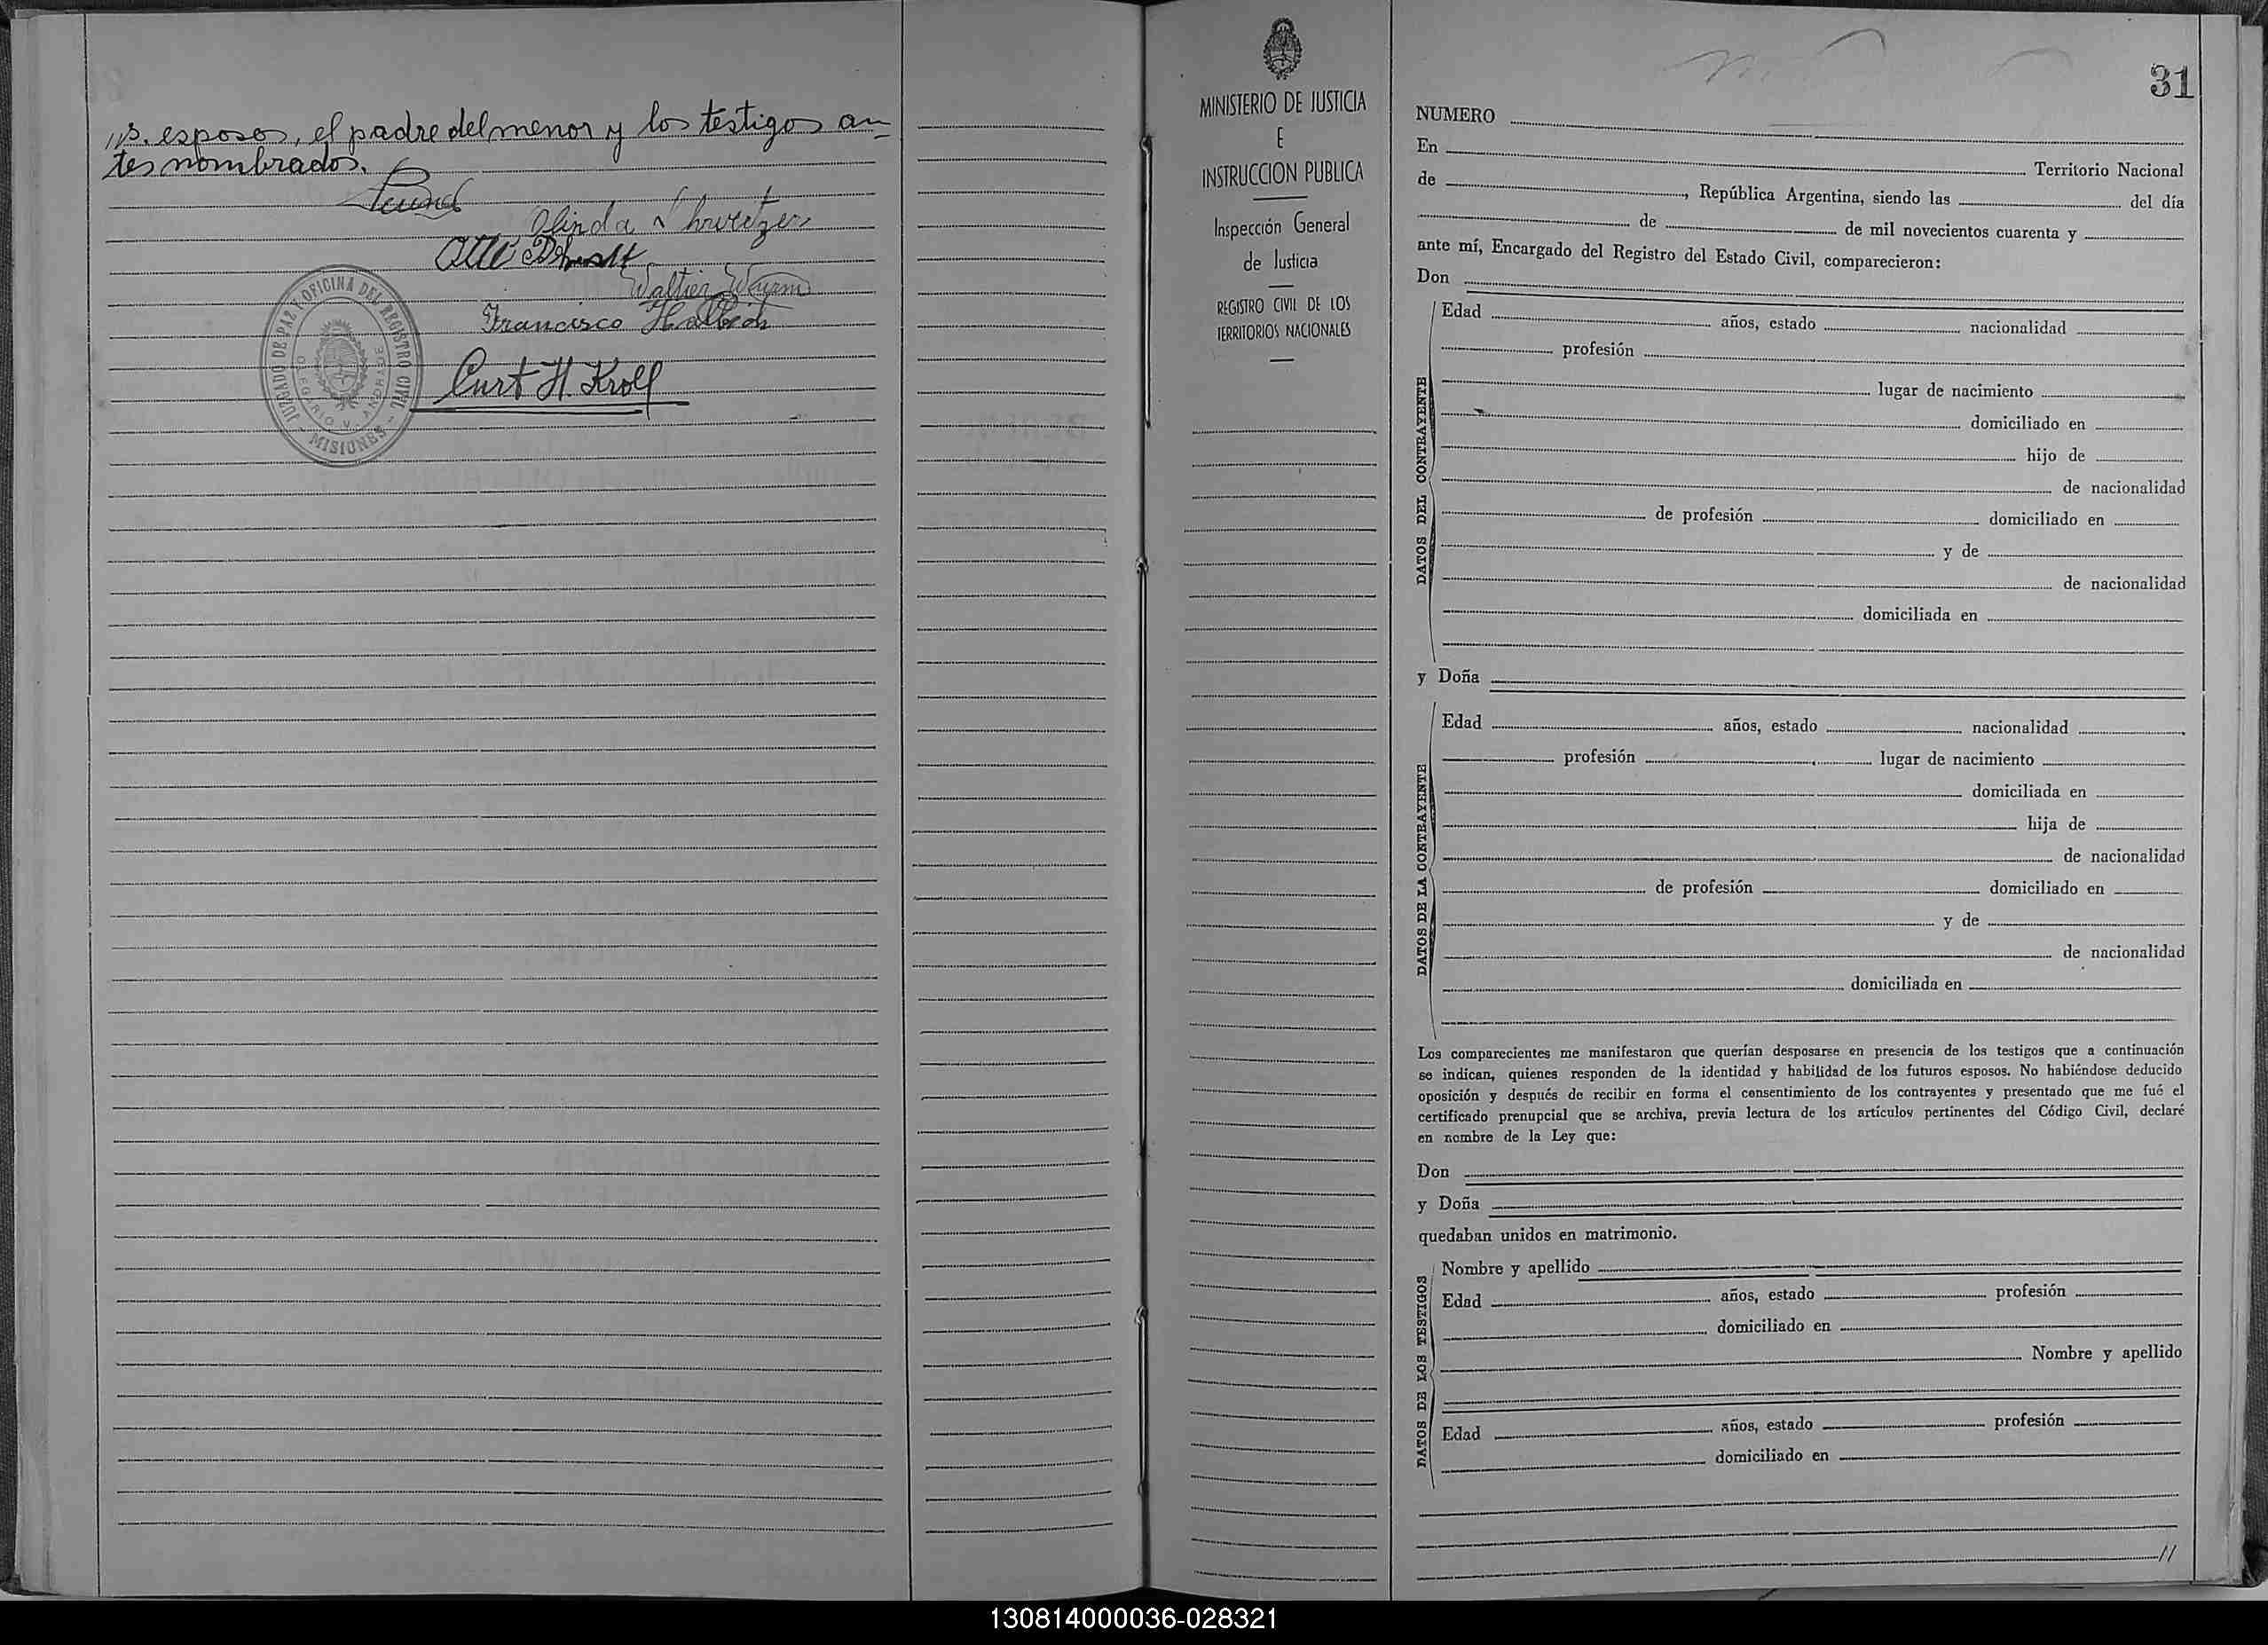 s. esposos, el padre del menor y los testigos an-
tes nombrados.
Olinda
Otto
Walter Wurm
Francisco
Curt H. Kroll
JUZGADO DE PAZ Y OFICINA DEL REGISTRO CIVIL
MISIONES
MINISTERIO DE JUSTICIA
E
INSTRUCCION PUBLICA
Inspección General
de Justicia
REGISTRO CIVIL DE LOS
TERRITORIOS NACIONALES
31
NUMERO
En Territorio Nacional
de , República Argentina, siendo las del día
de de mil novecientos cuarenta y
ante mí, Encargado del Registro del Estado Civil, comparecieron:
Don
DATOS DEL CONTRAYENTE
Edad años, estado nacionalidad
profesión
lugar de nacimiento
domiciliado en
hijo de
de nacionalidad
de profesión domiciliado en
y de
de nacionalidad
domiciliada en
y Doña
DATOS DE LA CONTRAYENTE
Edad años, estado nacionalidad
profesión lugar de nacimiento
domiciliada en
hija de
de nacionalidad
de profesión domiciliado en
y de
de nacionalidad
domiciliada en
Los comparecientes me manifestaron que querían desposarse en presencia de los testigos que a continuación
se indican, quienes responden de la identidad y habilidad de los futuros esposos. No habiéndose deducido
oposición y después de recibir en forma el consentimiento de los contrayentes y presentado que me fué el
certificado prenupcial que se archiva, previa lectura de los artículos pertinentes del Código Civil, declaré
en nombre de la Ley que:
Don
y Doña
quedaban unidos en matrimonio.
DATOS DE LOS TESTIGOS
Nombre y apellido
Edad años, estado profesión
domiciliado en
Nombre y apellido
Edad años, estado profesión
domiciliado en
//
130814000036-028321